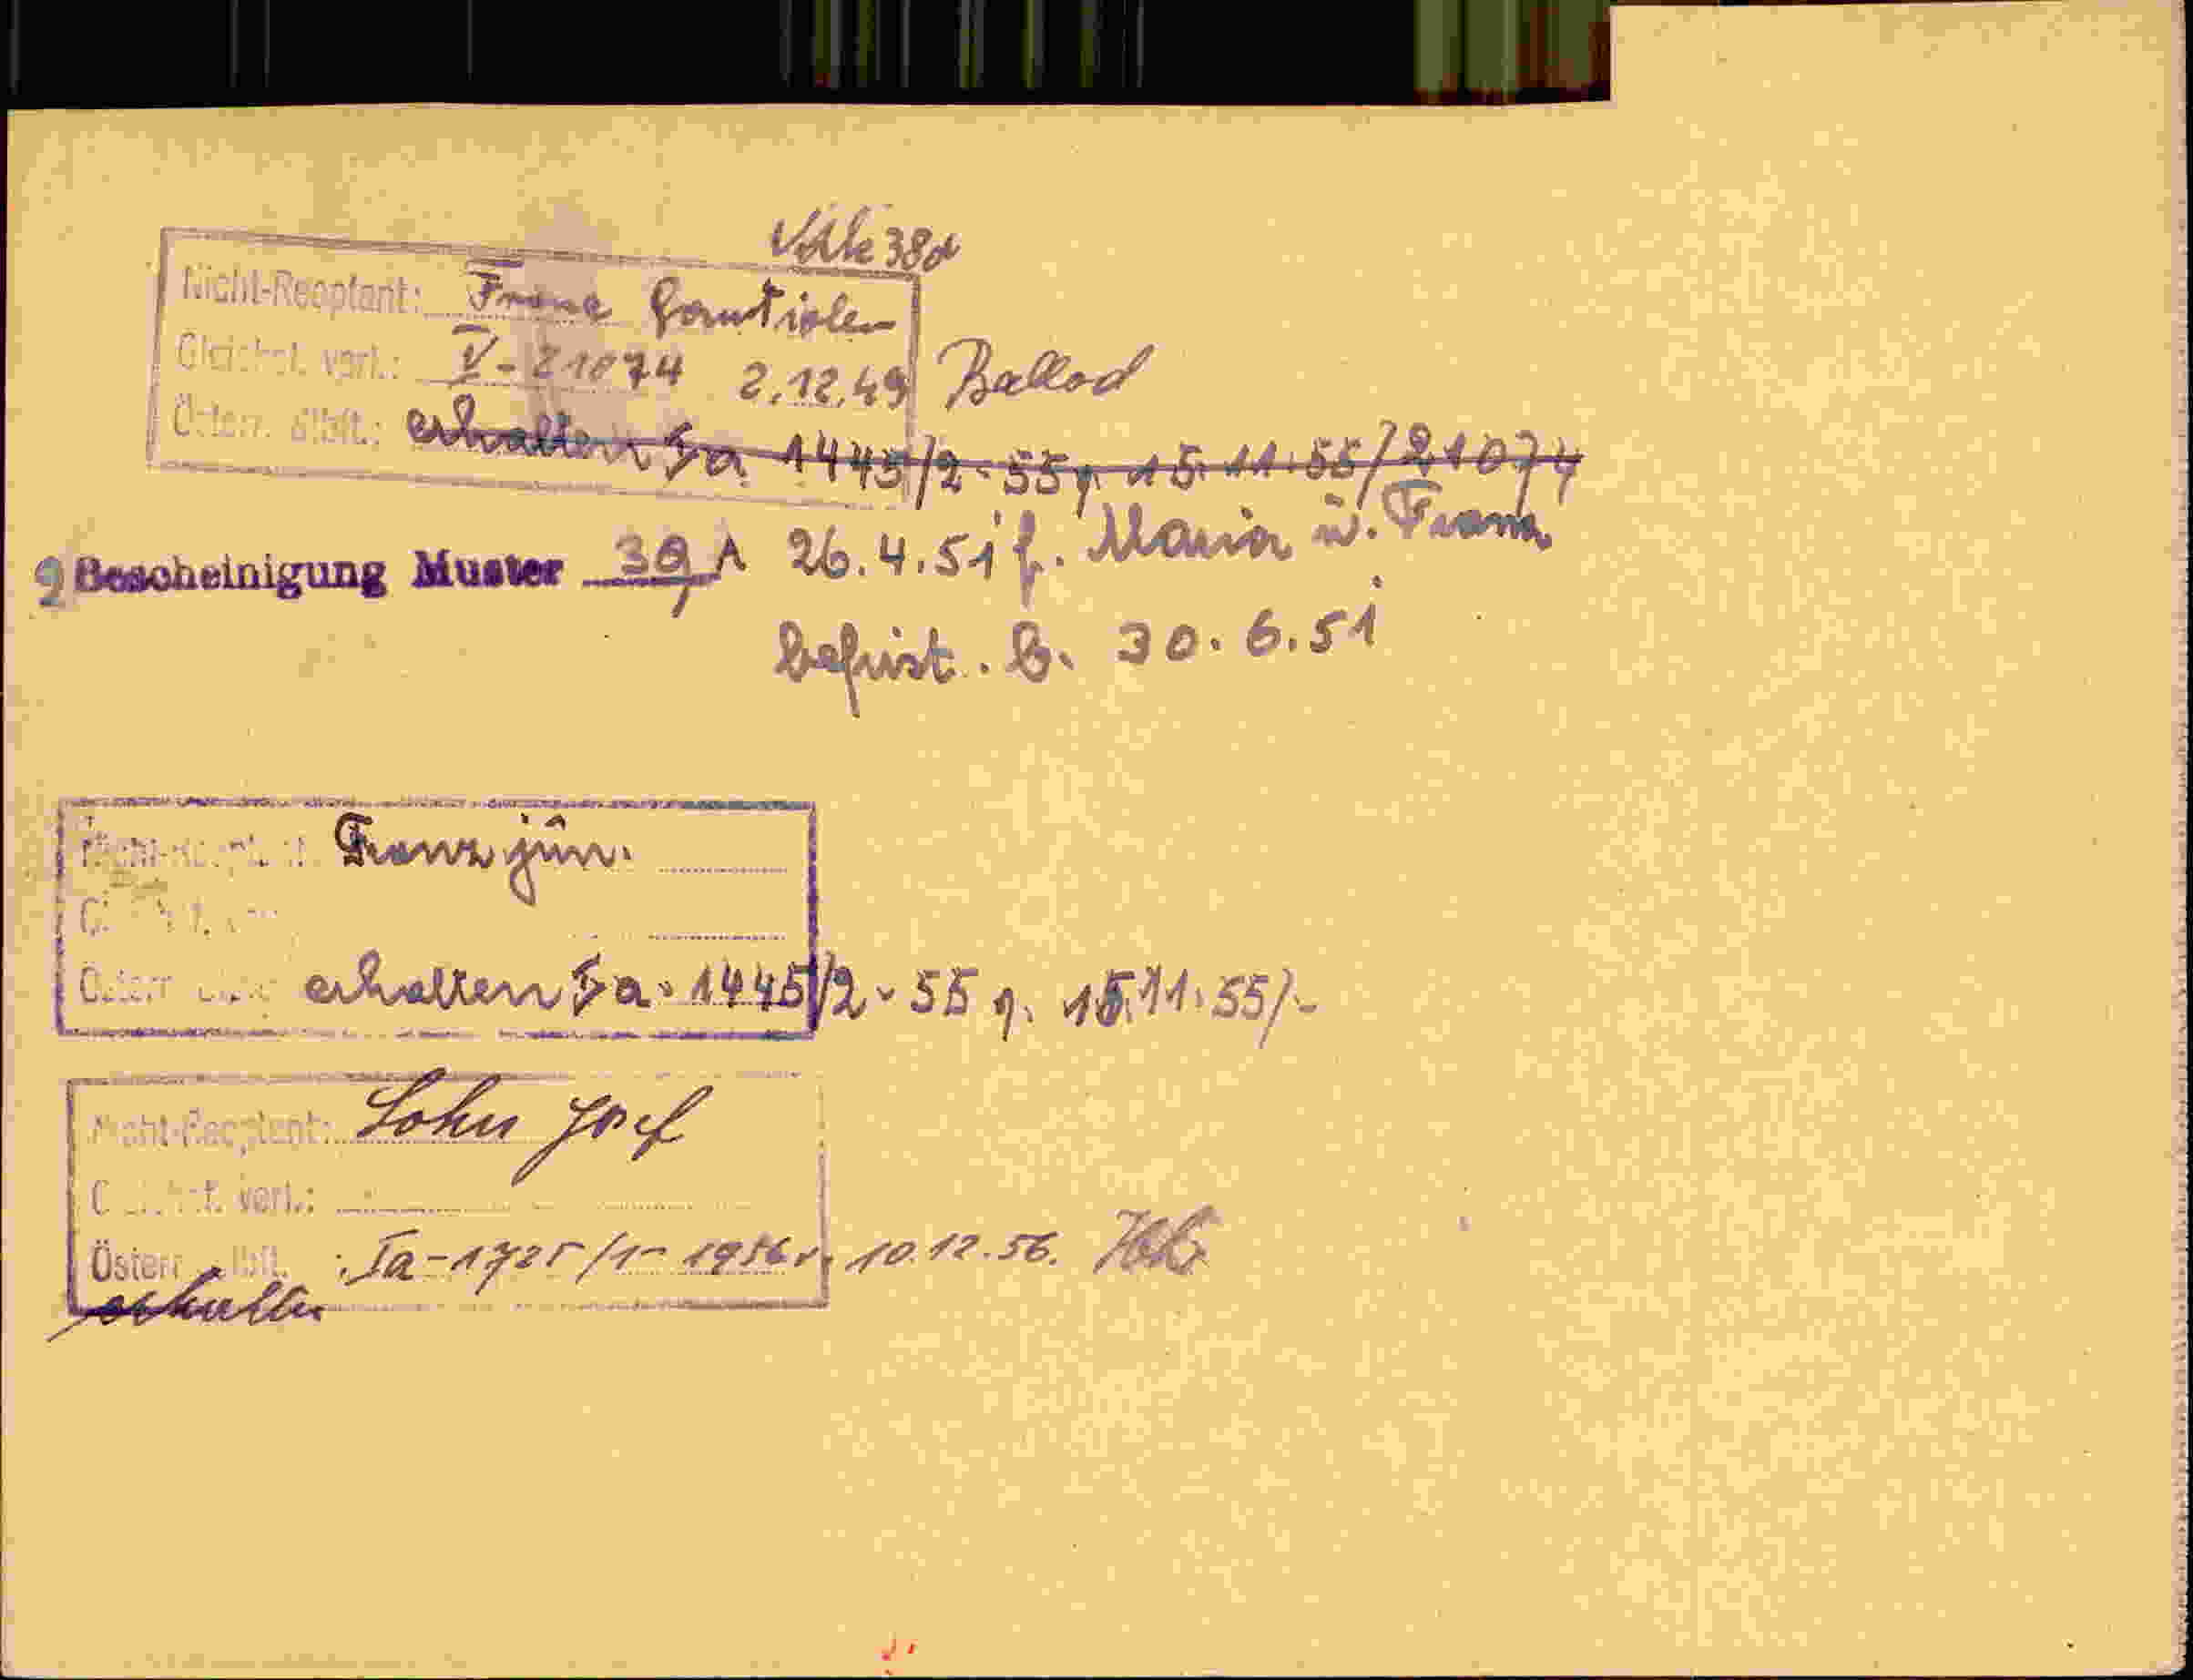 38d
Nicht-Reoptant: Franz
Gleichst. verl.: V-21074 2.12.49 Ballod
Österr. stbft.: erhalten Ia 1445/2-55 v. 15.11.55/21074
2 Bescheinigung Muster 39 A 26.4.51 f. Maria u. Franz
befrist. b. 30.6.51
Nicht-Reoptant: Franz jun.
erhalten Ia-1445/2-55 v. 15.11.55/-
Nicht-Reoptant: Sohn Josef
Gleichst. verl.:
Österr. stbft.: Ia-1725/1-1956 v. 10.12.56.
erhalten